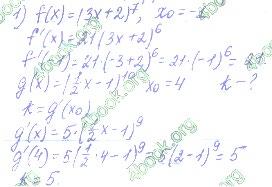 1) f(x)=(3x+2)⁷, x₀=-1
f'(x)=21(3x+2)⁶
f'(-1)=21·(-3+2)⁶=21·(-1)⁶=21
g(x)=(½x-1)¹⁰ x₀=4 k-?
k=g'(x₀)
g'(x)=5·(½x-1)⁹
g'(4)=5(½·4-1)⁹=5(2-1)⁹=5
k=5.